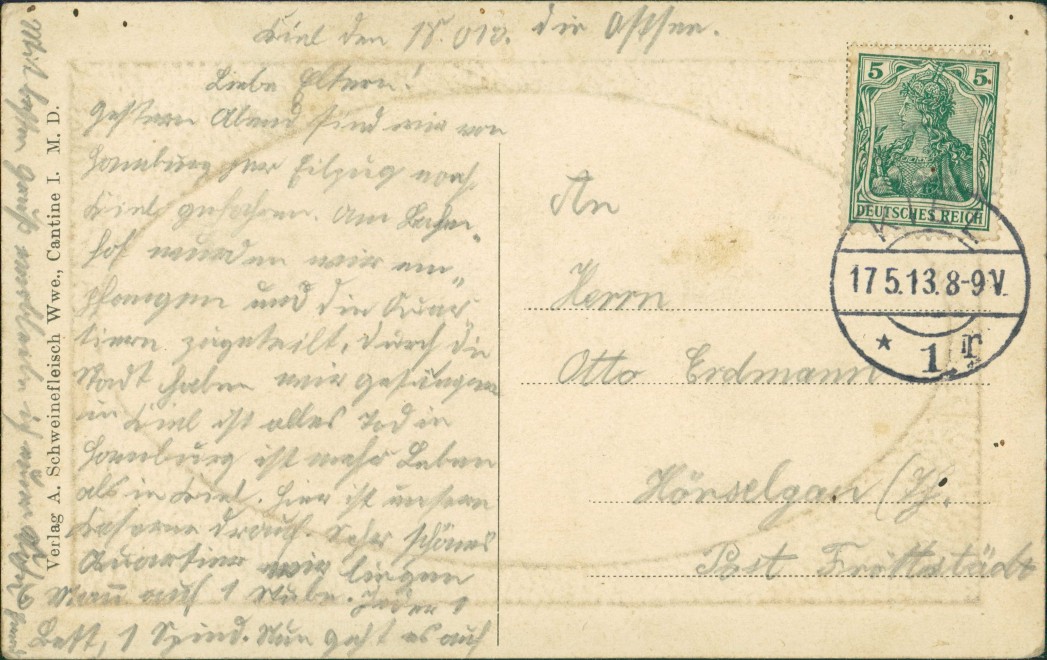 Kiel den die Ostsee.
Liebe Eltern!
Gestern Abend sind wir von
Hamburg per Eilzug nach
Kiel gefahren. Am Bahn-
hof wurden wir em-
pfangen und die Quar-
tiere zugeteilt, durch die
Stadt haben wir gesungen
in Kiel ist alles Tod in
Hamburg ist mehr Leben
als in Kiel. Hier ist unsere
Kaserne drauf. Sehr schönes
Quartier wir liegen
Mann auf 1 Stube. Jeder 1
Bett, 1 Spind. Nun geht es auf
Verlag A. Schweinefleisch Wwe., Cantine I. M. D.
5 5
DEUTSCHES REICH
KIEL
17.5.13.8-9V.
* 1 r
An
Herrn
Otto Erdmann
Hörselgau (Th.
Post Fröttstädt